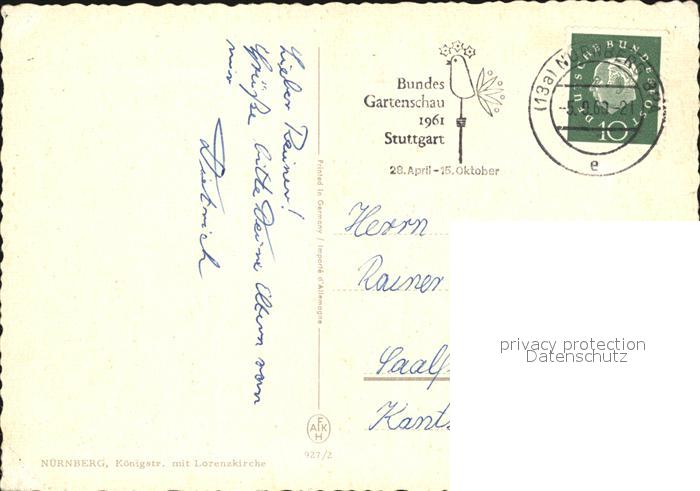 Lieber Rainer!
Grüße bitte Deine Eltern von
mir
Dietrich
Printed in Germany / Importé d'Allemagne
AFKH
927/2
NÜRNBERG, Königstr. mit Lorenzkirche
Bundes
Gartenschau
1961
Stuttgart
28. April - 15. Oktober
(13a) NÜRNBERG
e
DEUTSCHE BUNDESPOST
10
Herrn
Rainer
Saalf
Kants
privacy protection
Datenschutz